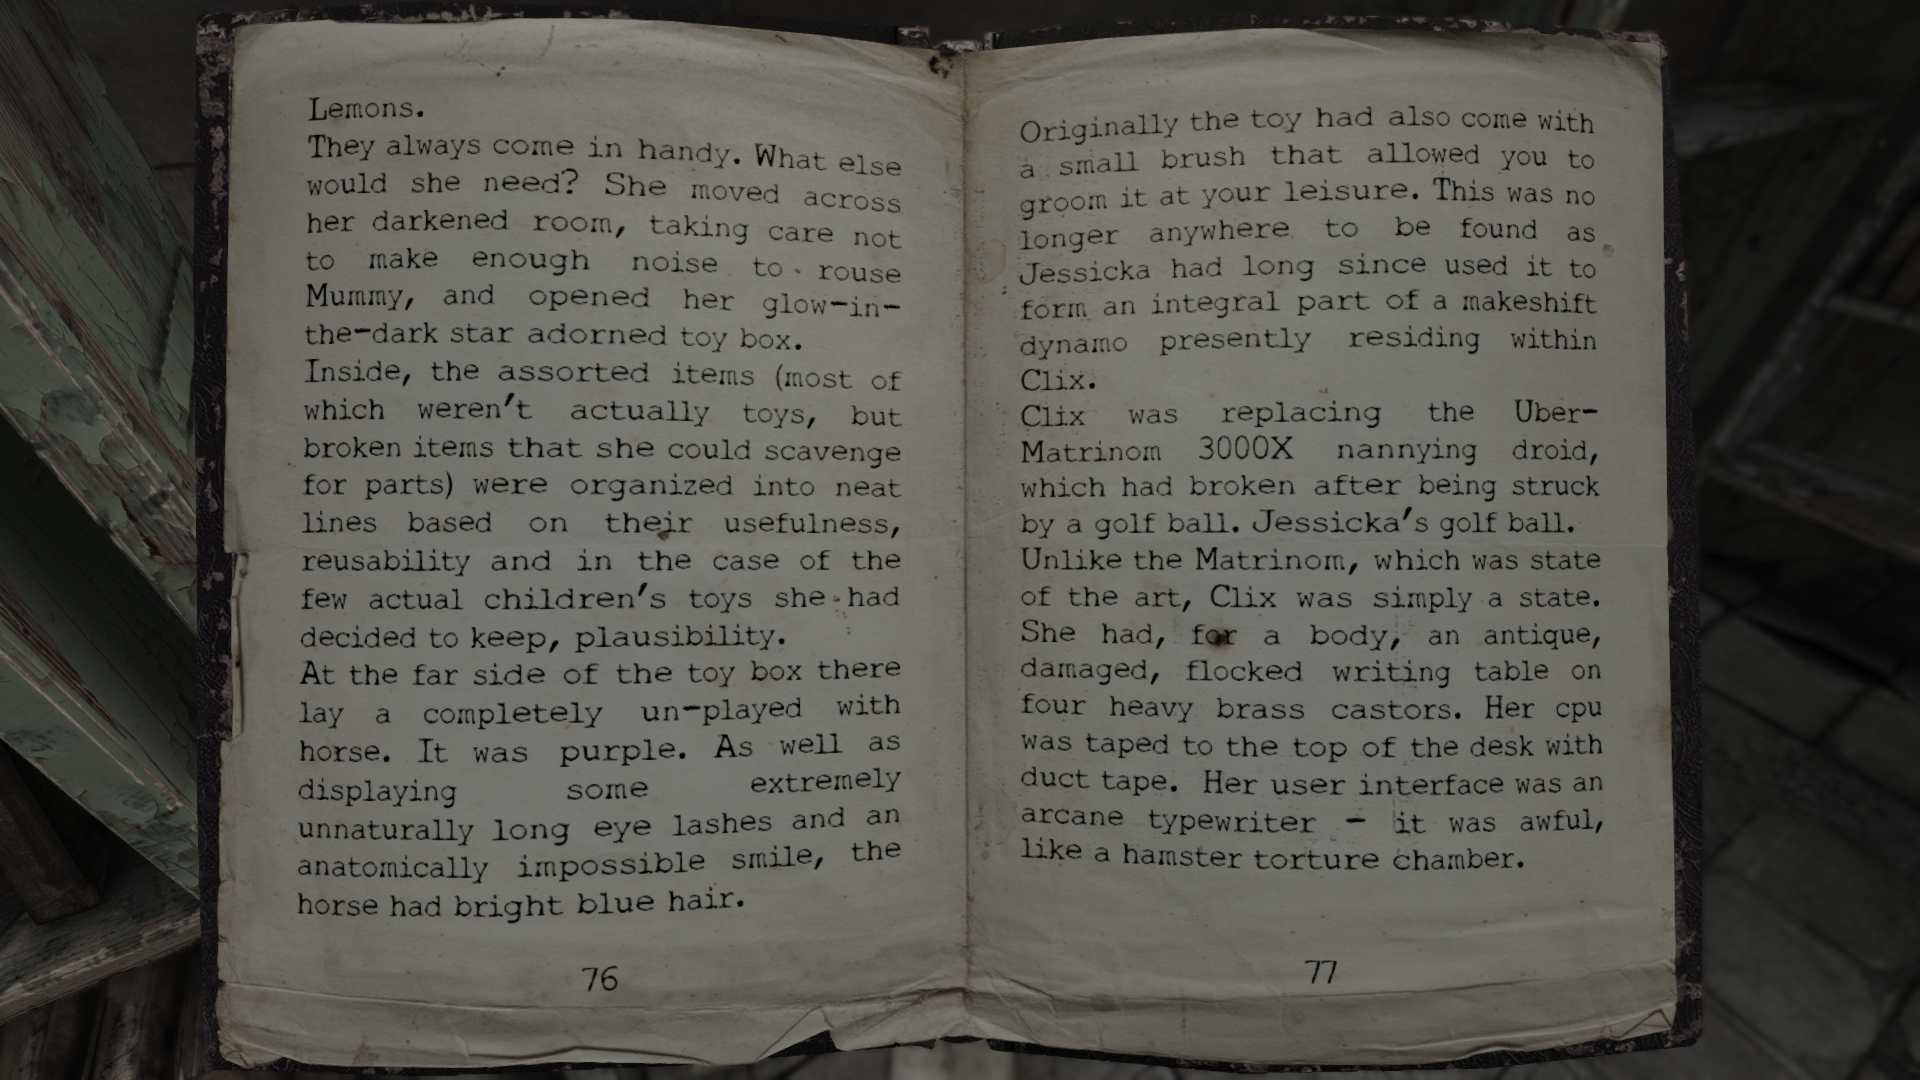 Lemons.
They always come in handy. What else
would she need? She moved across
her darkened room, taking care not
to make enough noise to rouse
Mummy, and opened her glow-in-
the-dark star adorned toy box.
Inside, the assorted items (most of
which weren't actually toys, but
broken items that she could scavenge
for parts) were organized into neat
lines based on their usefulness,
reusability and in the case of the
few actual children's toys she had
decided to keep, plausibility.
At the far side of the toy box there
lay a completely un-played with
horse. It was purple. As well as
displaying some extremely
unnaturally long eye lashes and an
anatomically impossible smile, the
horse had bright blue hair.
76
Originally the toy had also come with
a small brush that allowed you to
groom it at your leisure. This was no
longer anywhere to be found as
Jessicka had long since used it to
form an integral part of a makeshift
dynamo presently residing within
Clix.
Clix was replacing the Uber-
Matrinom 3000X nannying droid,
which had broken after being struck
by a golf ball. Jessicka's golf ball.
Unlike the Matrinom, which was state
of the art, Clix was simply a state.
She had, for a body, an antique,
damaged, flocked writing table on
four heavy brass castors. Her cpu
was taped to the top of the desk with
duct tape. Her user interface was an
arcane typewriter - it was awful,
like a hamster torture chamber.
77